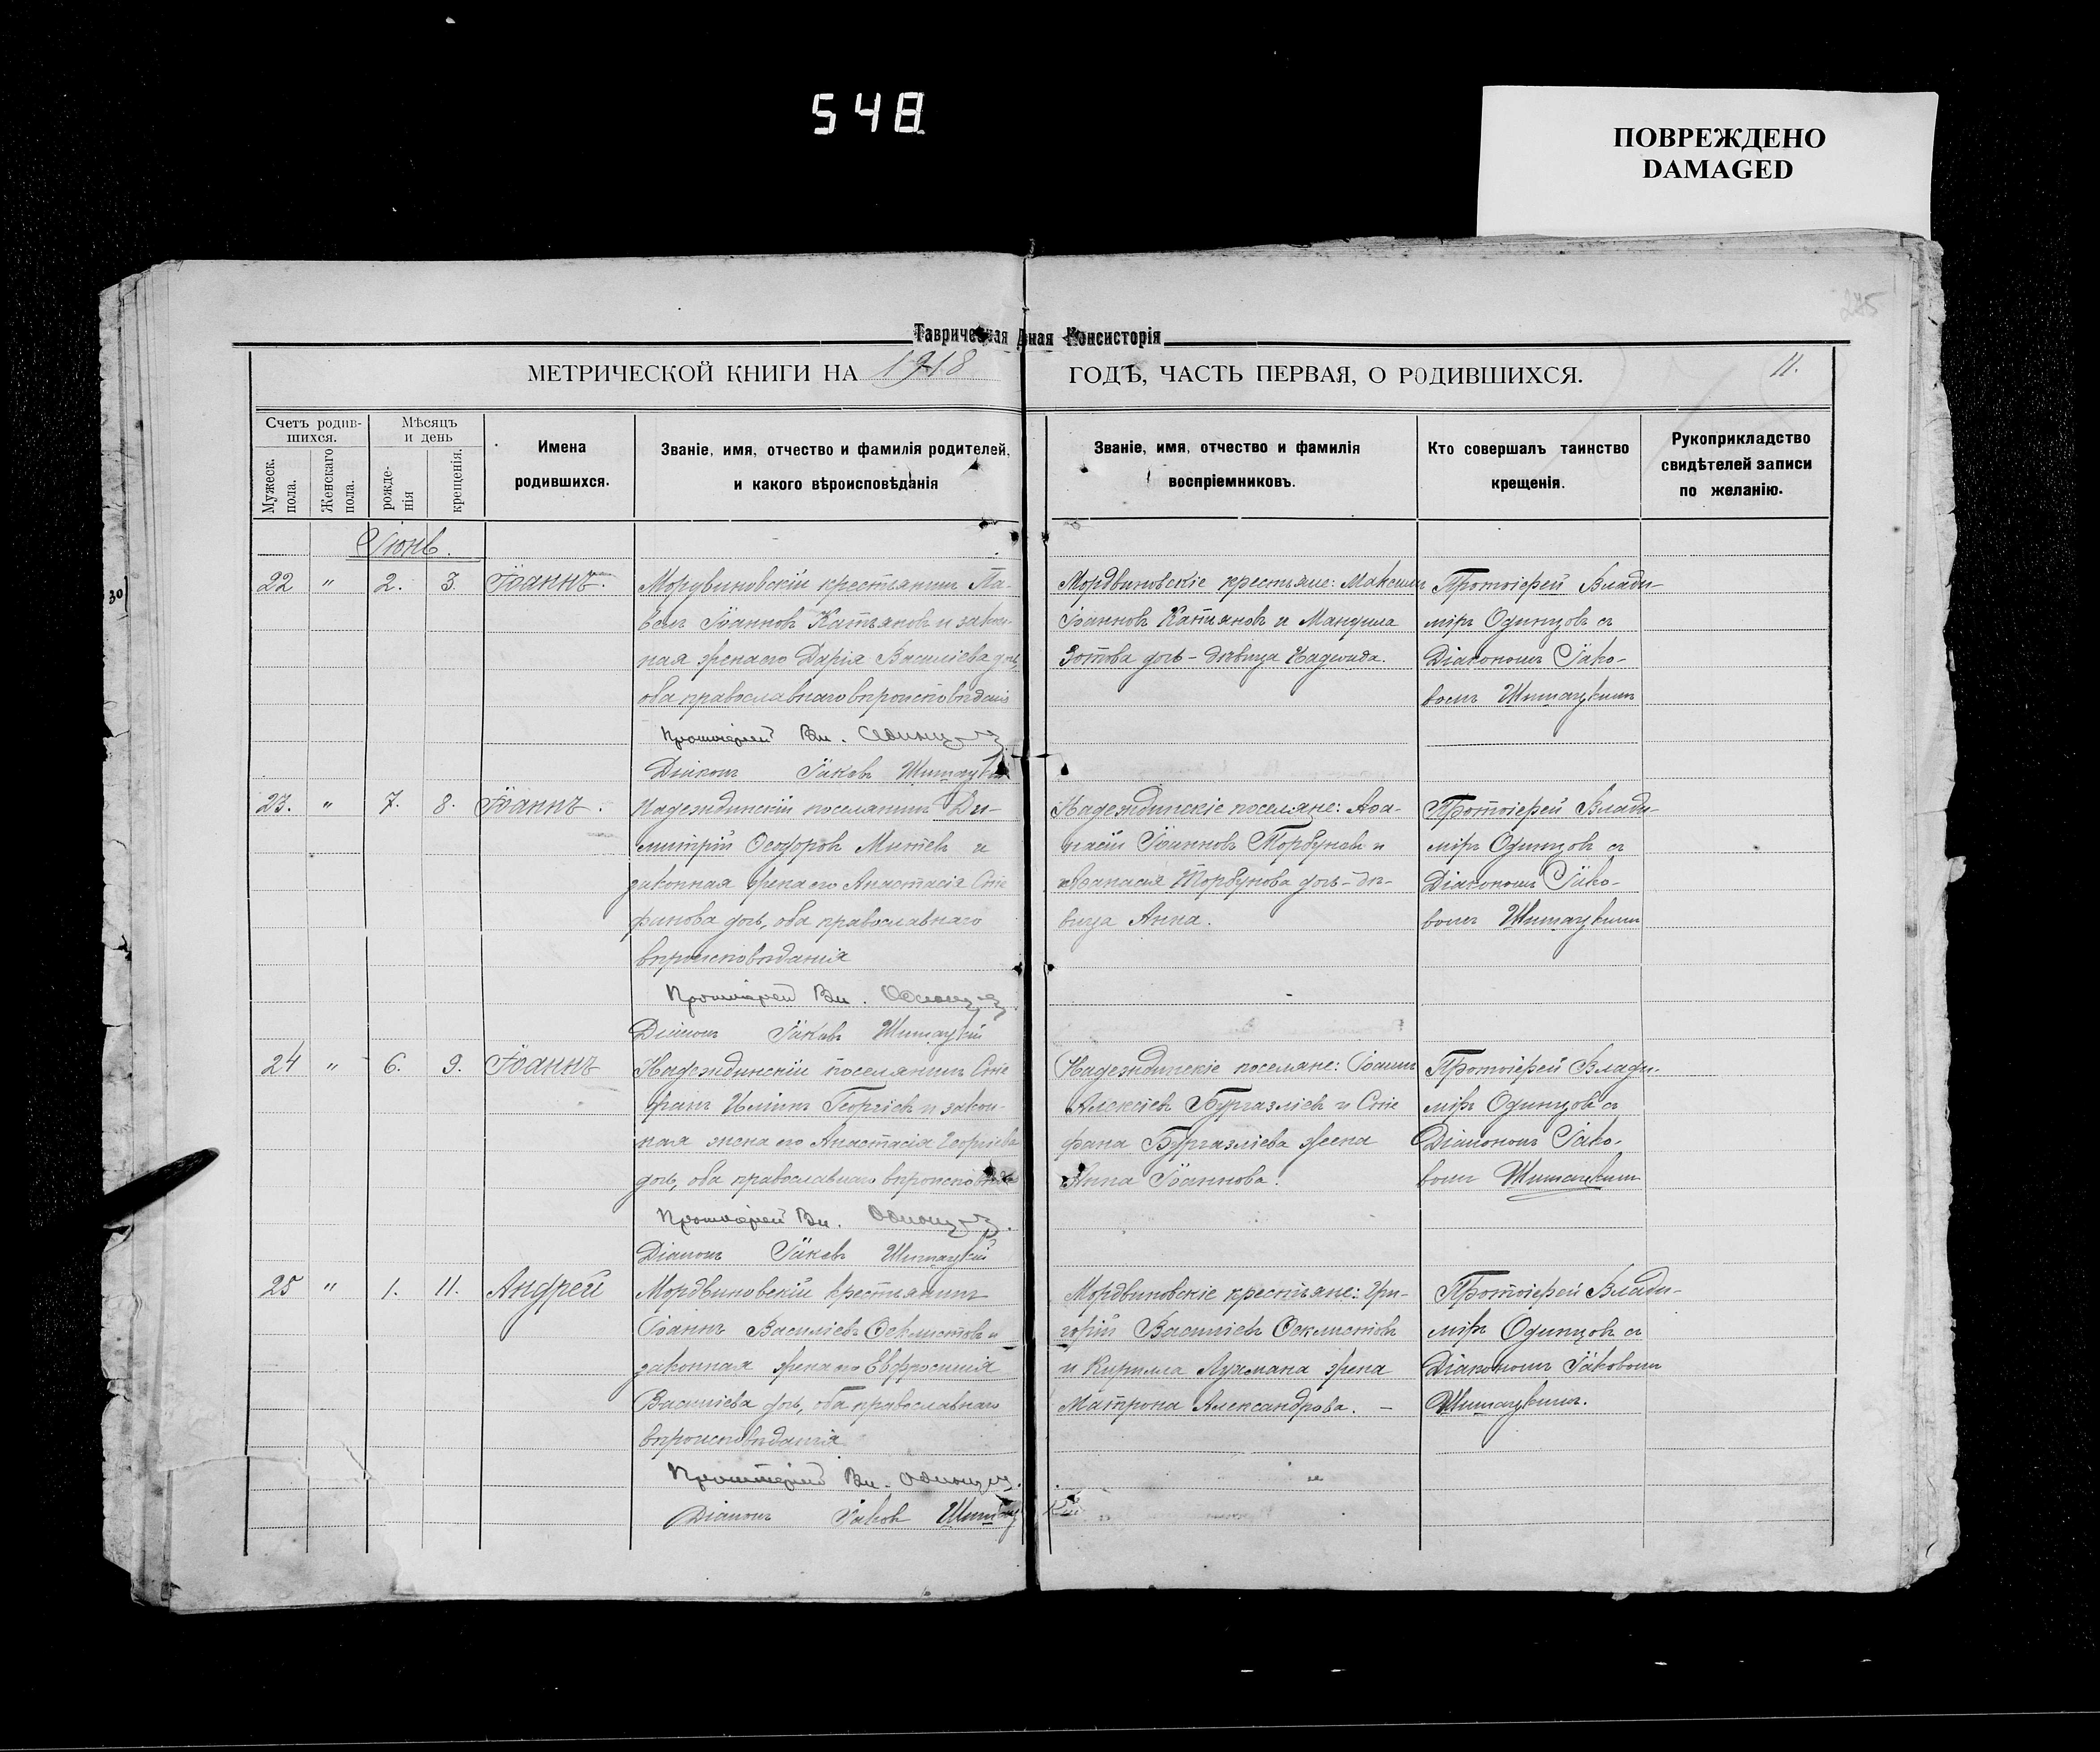 548
ПОВРЕЖДЕНО
DAMAGED
275
Таврическая Д ная Консисторія
МЕТРИЧЕСКОЙ КНИГИ НА 1918 ГОДЪ, ЧАСТЬ ПЕРВАЯ, О РОДИВШИХСЯ. 11.
Счетъ родив-
шихся.
Мужеск.
пола.
Женскаго
пола.
Мѣсяцъ
и день
рожде-
нія
крещенія.
Имена
родившихся.
Званіе, имя, отчество и фамилія родителей,
и какого вѣроисповѣданія
Званіе, имя, отчество и фамилія
воспріемниковъ.
Кто совершалъ таинство
крещенія.
Рукоприкладство
свидѣтелей записи
по желанію.
30
Іюнь.
22 " 2. 3. Іоаннъ.
Мордвиновскій крестьянинъ Па-
велъ Іоанновъ Катьяновъ и закон-
ная жена его Дарія Василіева дочь,
оба православнаго вѣроисповѣданія
Протоіерей Вл. Одинцовъ
Діаконъ Іаковъ Шишацкій
Мордвиновскіе крестьяне: Максимъ
Іоанновъ Катьяновъ и Мануила
Зотова дочь - дѣвица Надежда.
Протоіерей Влади-
міръ Одинцовъ съ
Діакономъ Іако-
вомъ Шишацкимъ
23. " 7. 8. Іоаннъ.
Надеждинскій поселянинъ Ди-
митрій Ѳеодоровъ Митевъ и
законная жена его Анастасія Сте
фанова дочь, оба православнаго
вѣроисповѣданія
Протоіерей Вл. Одинцовъ
Діаконъ Іаковъ Шишацкій
Надеждинскіе поселяне: Аѳа-
насій Іоанновъ Торбуновъ и
Аѳанасія Торбунова дочь - дѣ-
вица Анна.
Протоіерей Влади-
міръ Одинцовъ съ
Діакономъ Іако-
вомъ Шишацкимъ
24 " 6. 9. Іоаннъ
Надеждинскій поселянинъ Сте
фанъ Иліинъ Георгіевъ и закон-
ная жена его Анастасія Георгіева
дочь, оба православнаго вѣроисповѣд
Протоіерей Вл. Одинцовъ.
Діаконъ Іаковъ Шишацкій
Надеждинскіе поселяне: Іоаннъ
Алексіевъ Бургазліевъ и Сте
фана Бургазліева жена
Анна Іоаннова.
Протоіерей Влади-
міръ Одинцовъ съ
Діакономъ Іако-
вомъ Шишацкимъ
25 " 1. 11. Андрей
Мордвиновскій крестьянинъ
Іоаннъ Василіевъ Ѳеклистовъ и
законная жена его Евфросинія
Василіева дочь, оба православнаго
вѣроисповѣданія
Протоіерей Вл. Одинцовъ.
Діаконъ Іаковъ Шишацкій
Мордвиновскіе крестьяне: Гри-
горій Василіевъ Ѳеклистовъ
и Кирилла Лухмана жена
Матрона Александрова. -
Протоіерей Влади-
міръ Одинцовъ съ
Діакономъ Іаковомъ
Шишацкимъ.